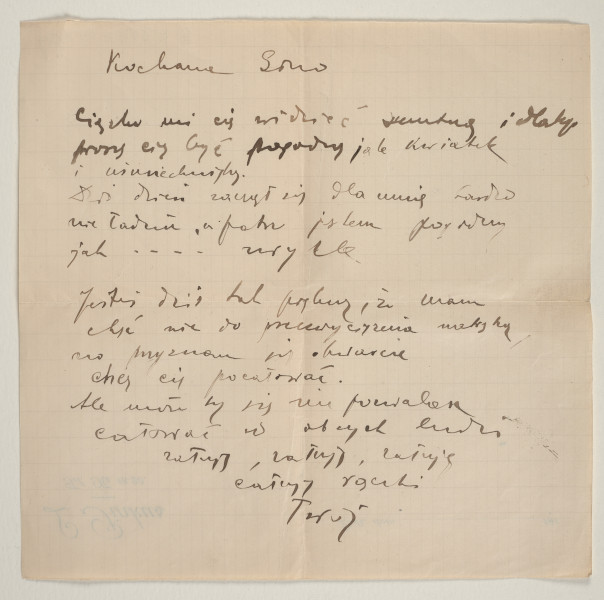 Kochana Gino
Ciężko mi cię widzieć smutną i dlatego
proszę cię być pogodny jak kwiatek
i uśmiechnięty.
Dziś dzień zaczął się dla mnie bardzo
nie ładnie, a patrz jestem pogodny
jak - - - - zwykle
Jesteś dziś tak piękny, że mam
chęć nie do przezwyciężenia
no przyznam się otwarcie
chcę cię pocałować.
Ale może ty się nie pozwalasz
całować w obcych ludzi
całuję
całuję rączki
Twój